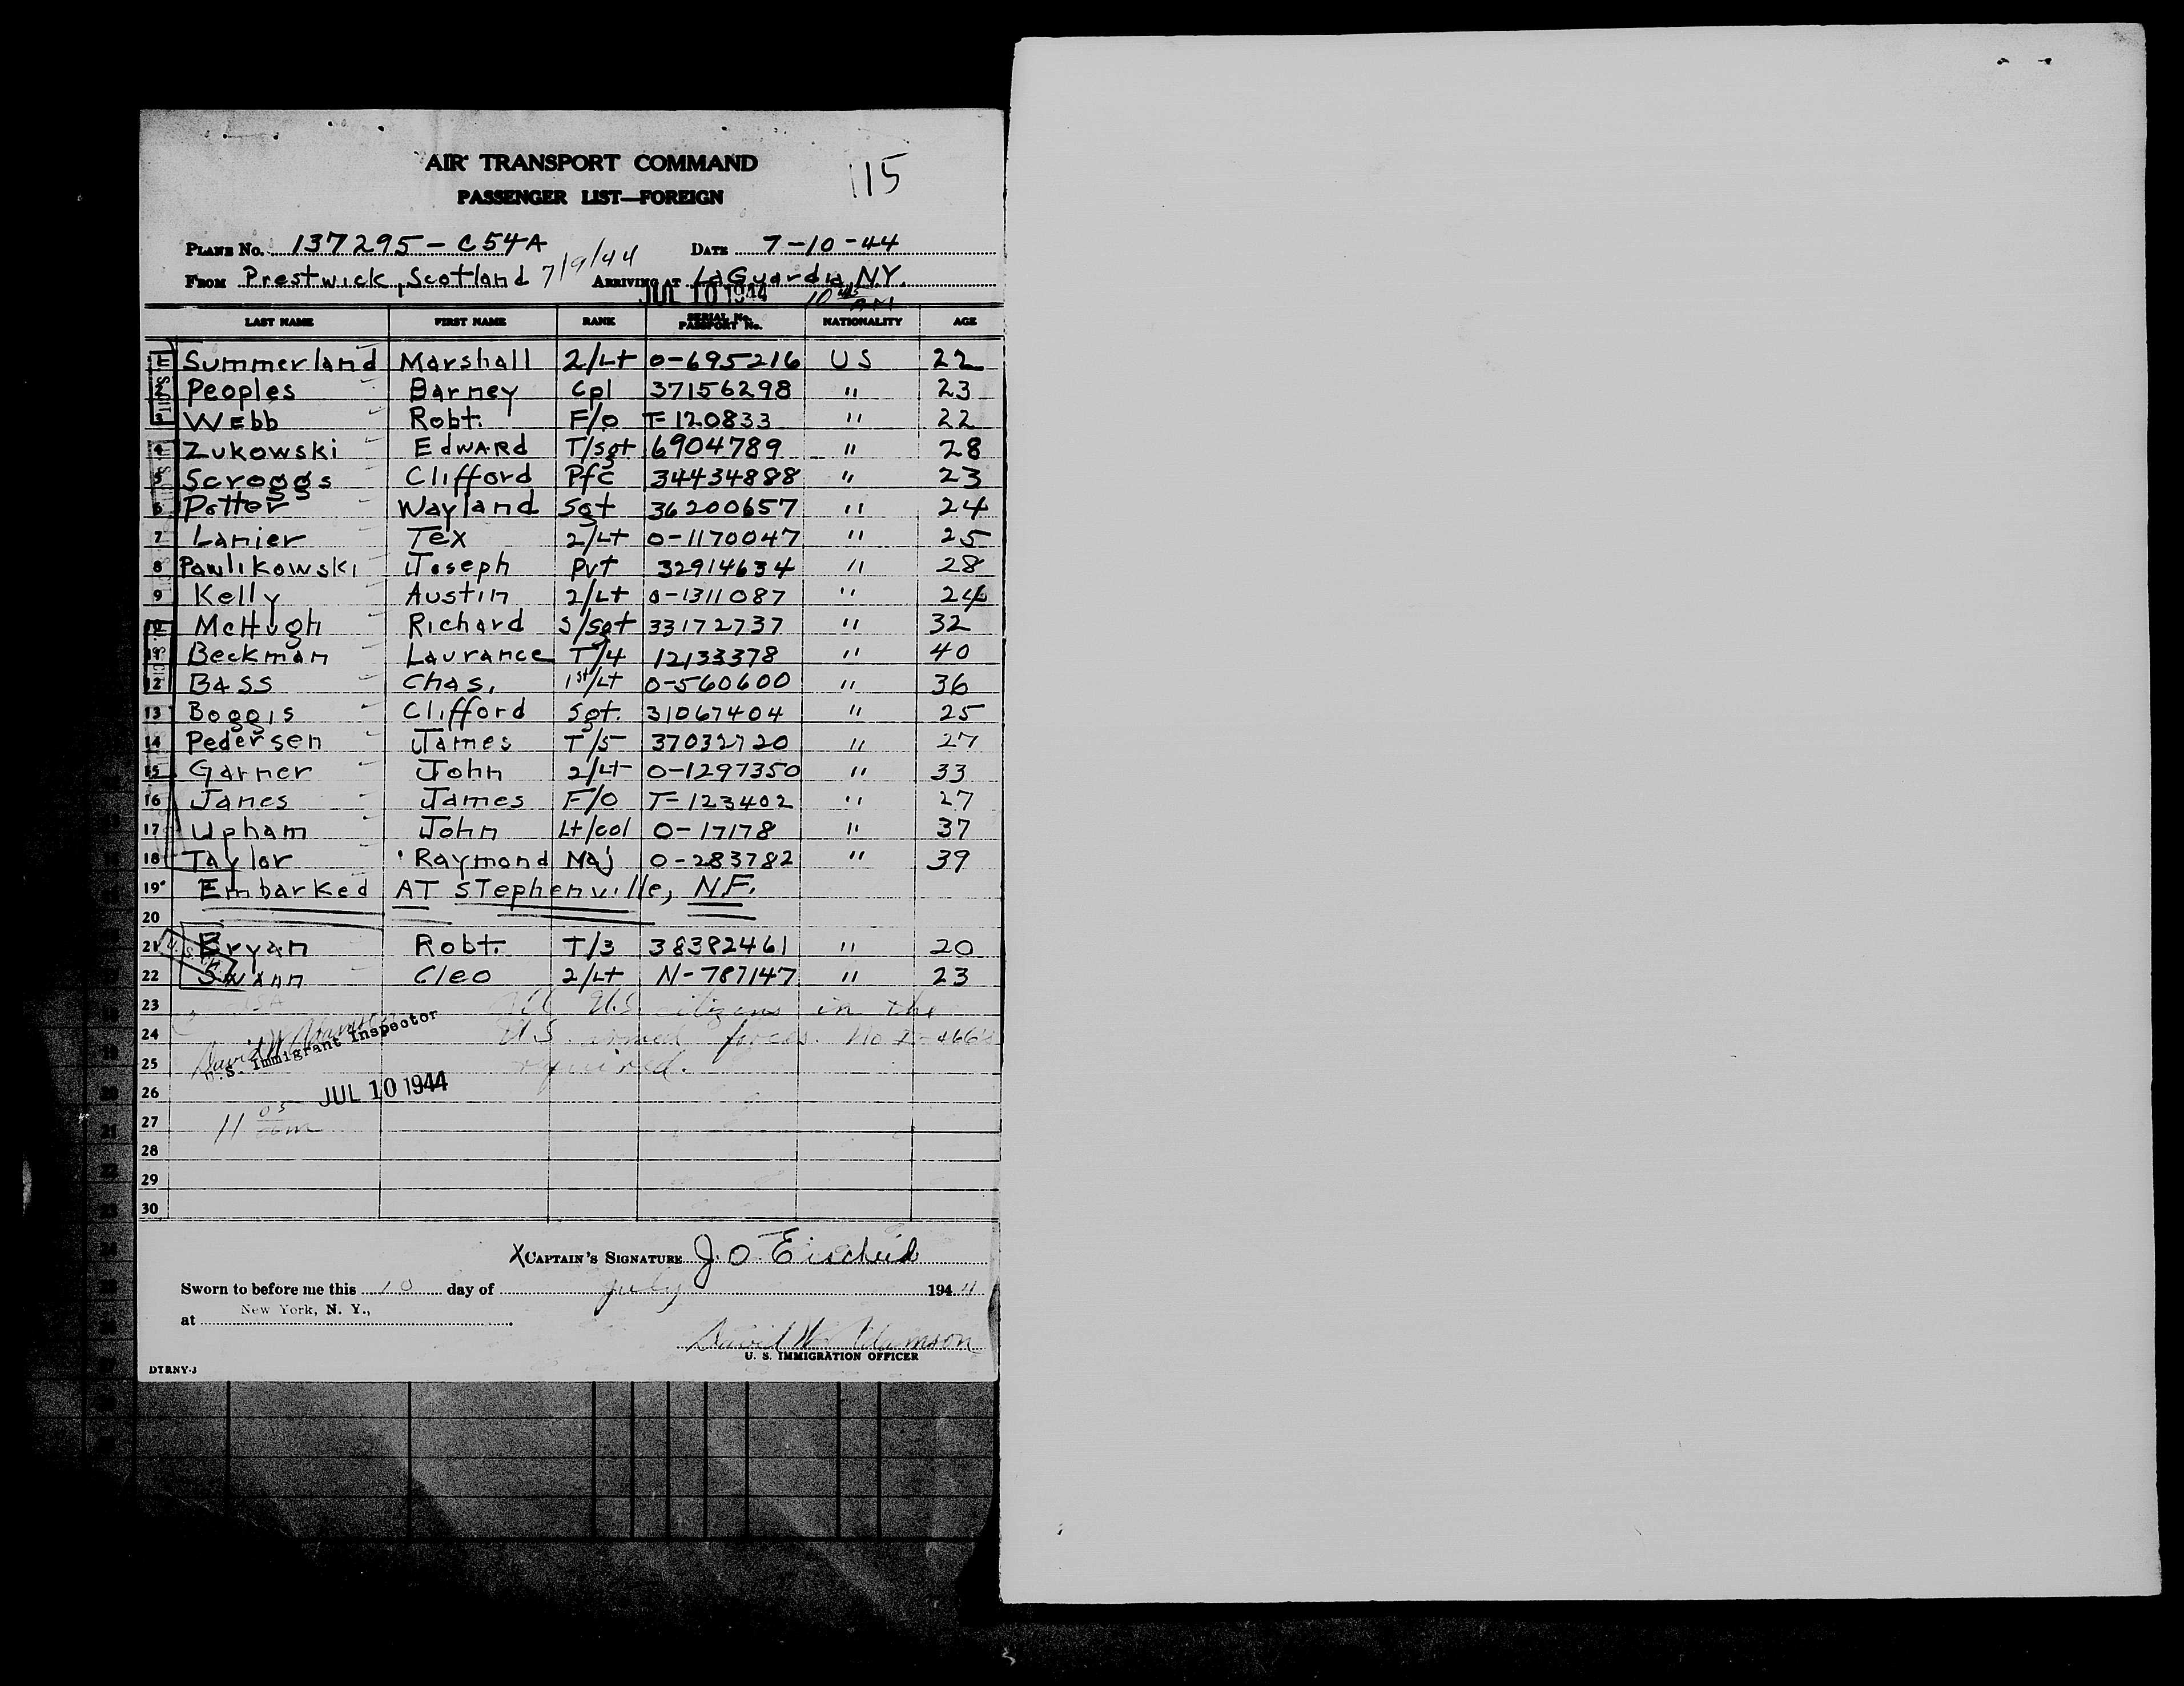 AIR TRANSPORT COMMAND
115
PASSENGER LIST—FOREIGN
PLANE No. 137295-C54A DATE 7-10-44
FROM Prestwick, Scotland 7/9/44 ARRIVING AT LaGuardia, N.Y.
JUL 10 1944 10 45 AM
LAST NAME FIRST NAME RANK SERIAL No. PASSPORT No. NATIONALITY AGE
1 Summerland Marshall 2/Lt 0-695216 US 22
2 Peoples Barney Cpl 37156298 " 23
3 Webb Robt. F/O T-120833 " 22
4 Zukowski Edward T/sgt 6904789 " 28
5 Scroggs Clifford Pfc 34434888 " 23
6 Potter Wayland Sgt 36200657 " 24
7 Lanier Tex 2/Lt 0-1170047 " 25
8 Pawlikowski Joseph Pvt 32914634 " 28
9 Kelly Austin 2/Lt 0-1311087 " 24
10 McHugh Richard S/sgt 33172737 " 32
11 Beckman Laurance T/4 12133378 " 40
12 Bass Chas. 1st/Lt 0-560600 " 36
13 Boggis Clifford Sgt. 31067404 " 25
14 Pedersen James T/5 37032720 " 27
15 Garner John 2/Lt 0-1297350 " 33
16 Janes James F/O T-123402 " 27
17 Upham John Lt/col 0-17178 " 37
18 Taylor Raymond Maj 0-283782 " 39
19 Embarked AT Stephenville, N.F.
20
21 Bryan Robt. T/3 38382461 " 20
22 Swann Cleo 2/Lt N-787147 " 23
23 All U.S. citizens in the
24 David W. Adamson U.S. armed forces. No
U.S. Immigrant Inspector
25 required.
26 JUL 10 1944
27 11 05 am
28
29
30
X CAPTAIN'S SIGNATURE J. O. Eischeid
Sworn to before me this 10 day of July 1944
at New York, N. Y.,
David W. Adamson
U. S. IMMIGRATION OFFICER
DTRNY-J